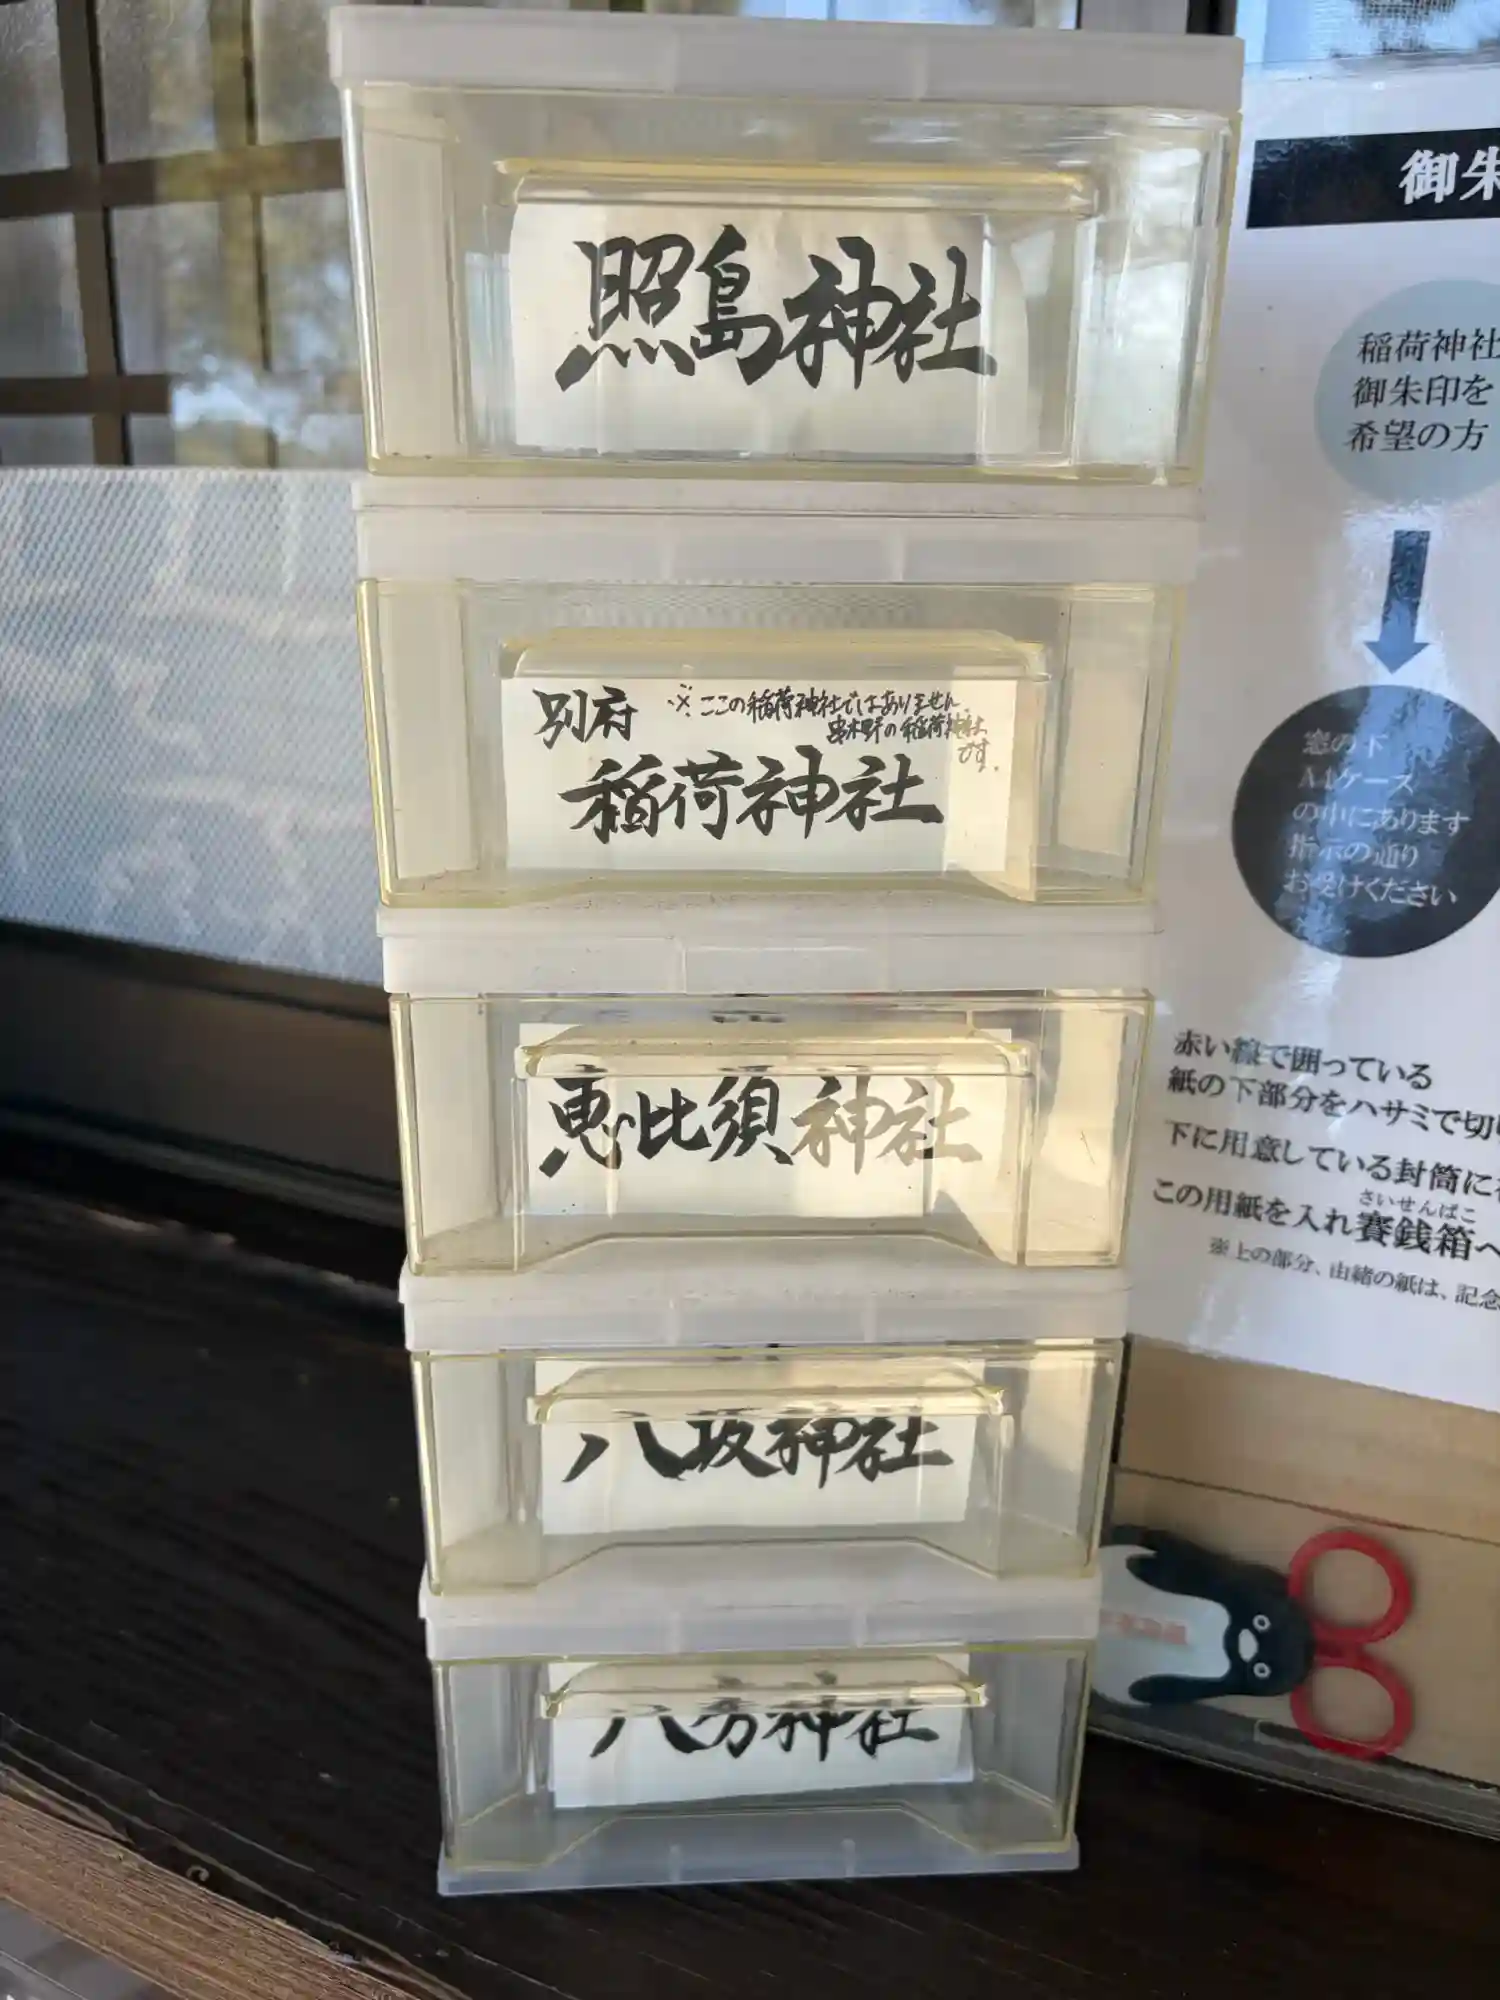 照島神社
別府
※ここの稲荷神社ではありません。
串木野の稲荷神社
です。
稲荷神社
恵比須神社
八坂神社
八房神社
御朱
稲荷神社
御朱印を
希望の方
窓の下
A4ケース
の中にあります
指示の通り
お受けください
赤い線で囲っている
紙の下部分をハサミで切
下に用意している封筒に
さいせんばこ
この用紙を入れ賽銭箱へ
※上の部分、由緒の紙は、記念